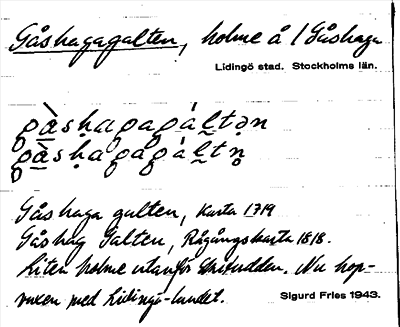 Gåshagagalten, holme å / Gåshaga
Lidingö stad. Stockholms län.
gå̀sḥagagáḷtən
gå̀sḥagagáḷtn̥
Gåshaga galten, Karta 1719
Gåshag Galten, Rågångskarta 1818.
Liten holme utanför. Nu hop-
vuxen med Lidingö-landet.
Sigurd Fries 1943.